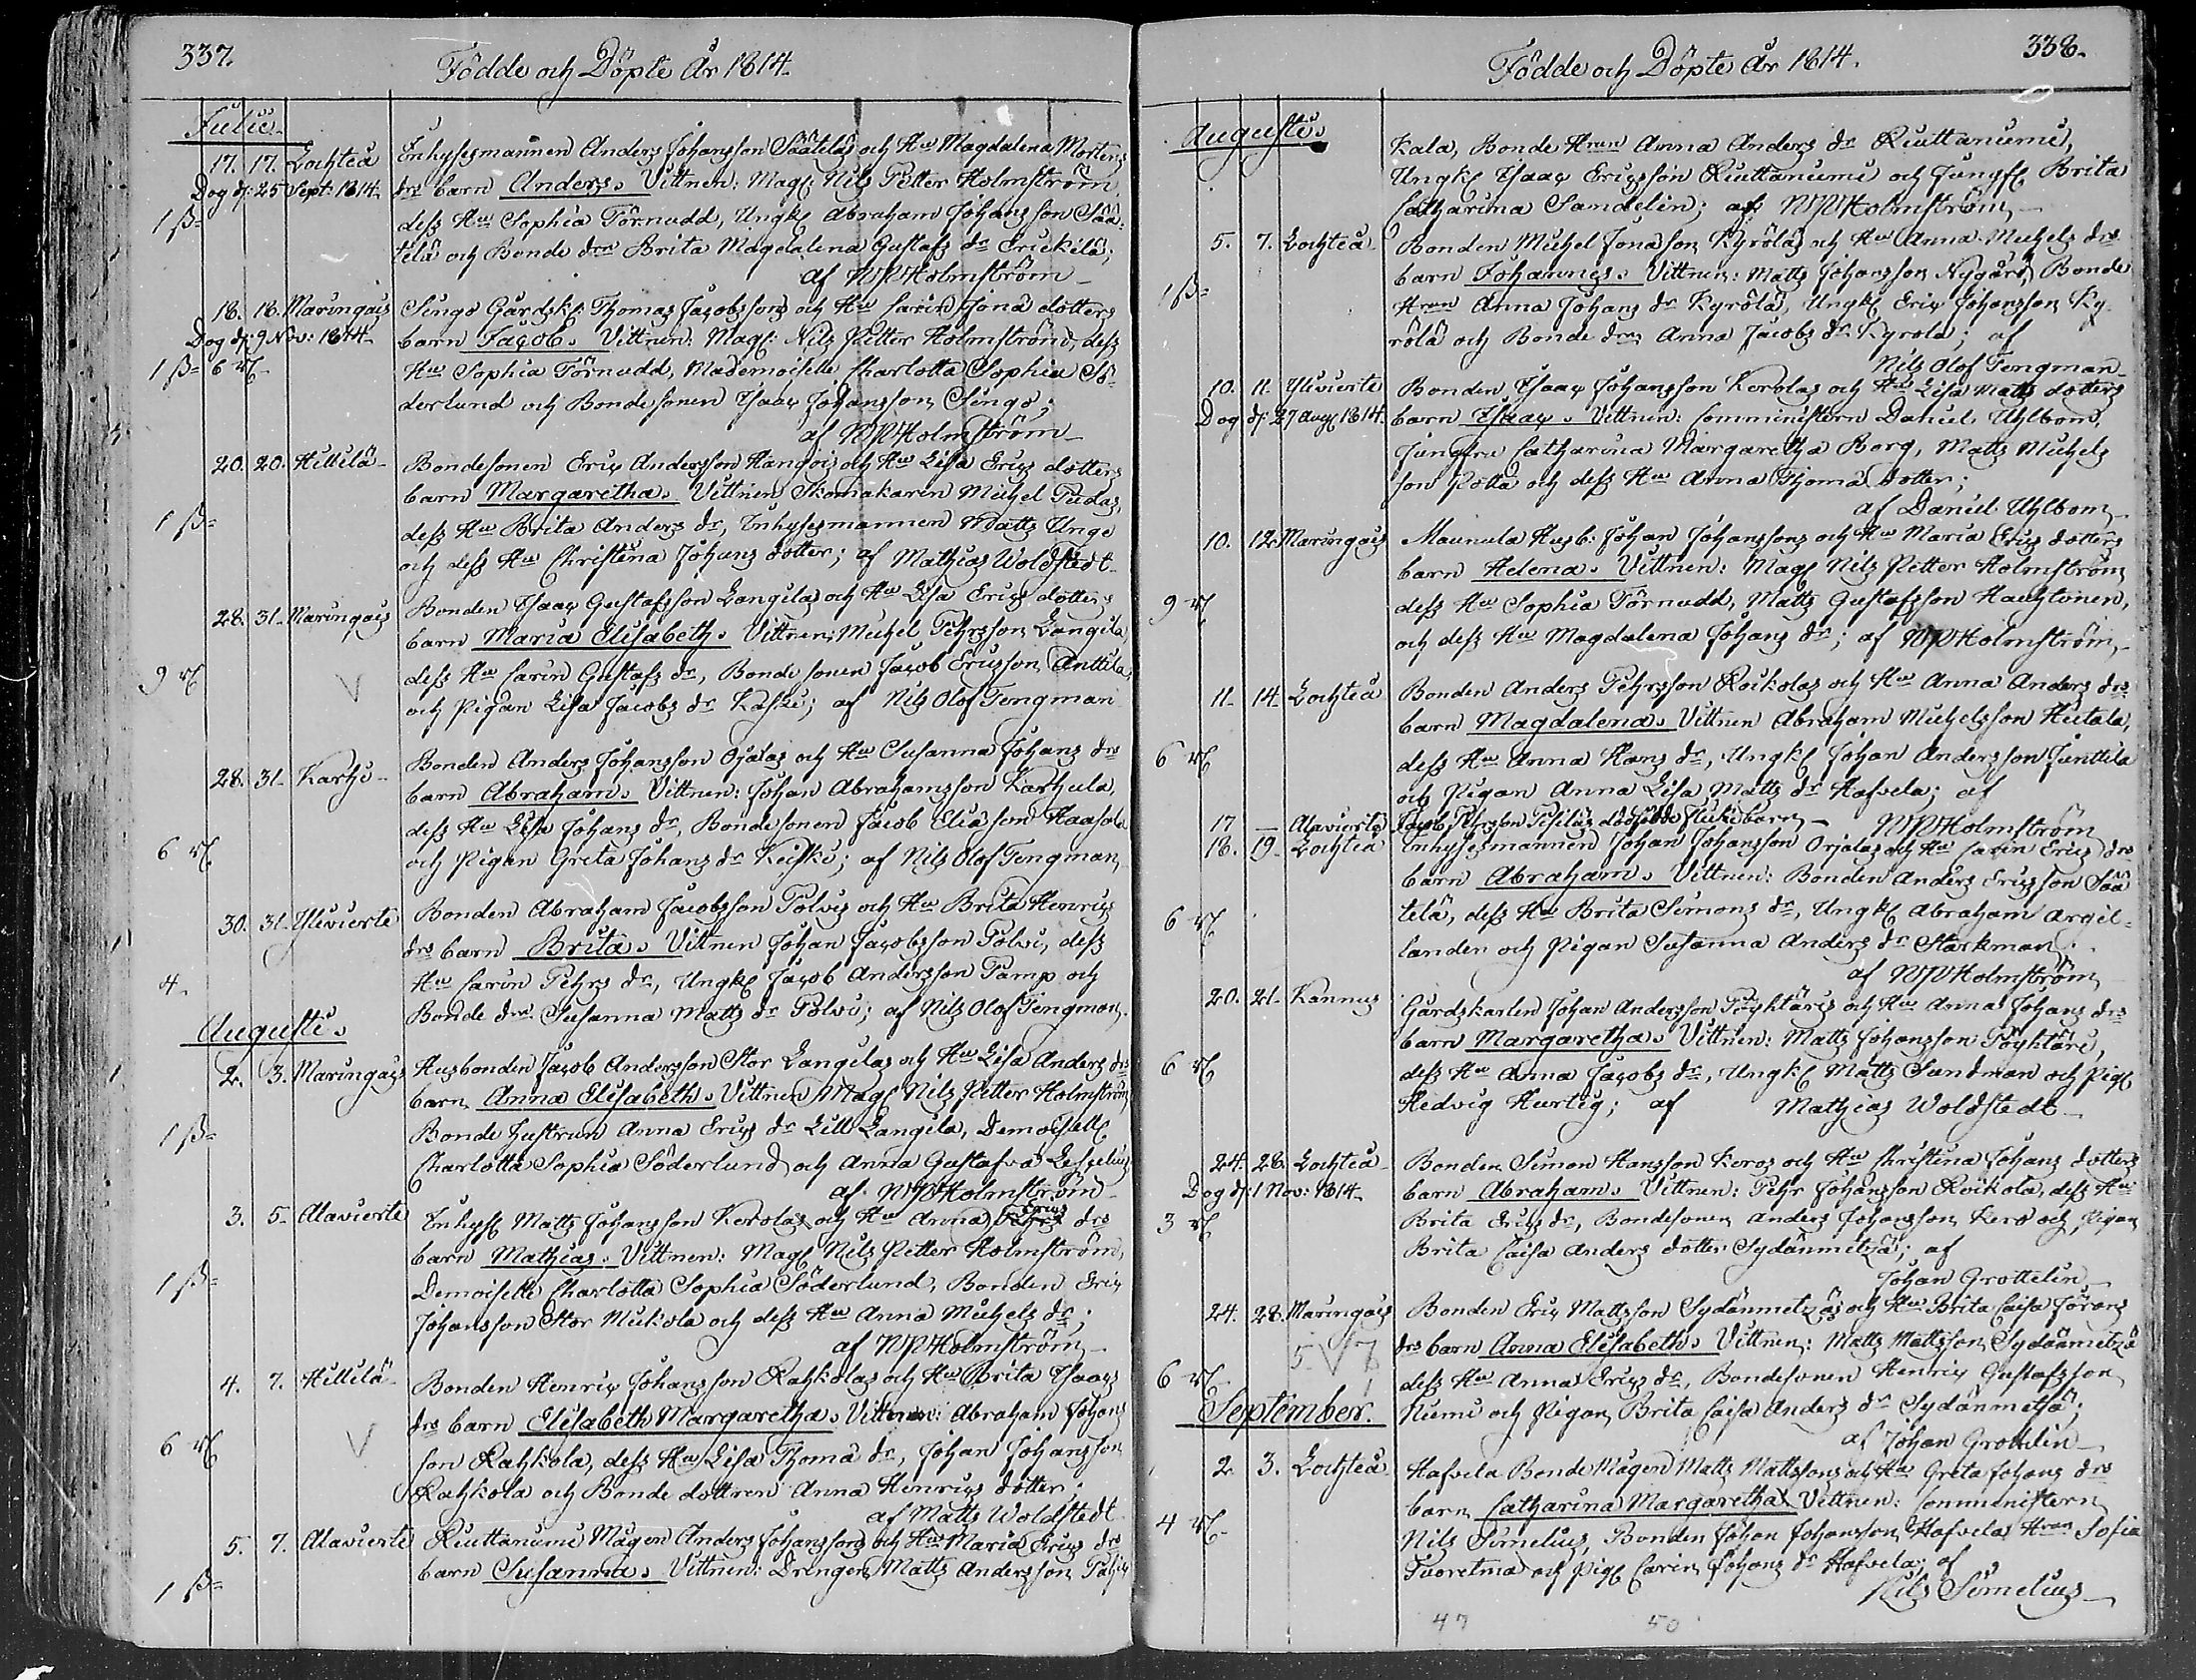 337.
Födde och Döpte År 1814.
Julii
17. 17. Lochteå Inhysesmannen Anders Johansson Säätelas och Hu Magdalena Mortens
Dog d: 25 Sept: 1814. drs barn Anders. Vittnen: Mag: Nils Petter Holmström
1 ß= dess Hu Sophia Törnudd, Ungk: Abraham Johansson Sää=
telä och Bonde drn Brita Magdalena Gustafs dr Erickilä;
af NPHolmström
18. 18. Maringais Singo Gårdsk: Thomas Jacobssons och Hu Carin Jona dotters
Dog d: 9 Nov: 1814. barn Jacob. Vittnen: Mag: Nils Petter Holmström, dess
1 ß= 6 rf Hu Sophia Törnudd, Mademoiselle Charlotta Sophia Sö
derlund och Bondesonen Isaac Johansson Singo;
af NPHolmström
20. 20. Hillilä Bondesonen Eric Andersson Hangois och Hu Lisa Erics dotters
barn Margaretha. Vittnen Skomakaren Michel Pudas,
1 ß= dess Hu Brita Anders dr, Inhysesmannen Matts Unge
och dess Hu Christina Johans dotter; af Mathias Woldstedt
28. 31. Maringais Bonden Isaac Gustafsson Langilas och Hu Lisa Erics dotters
barn Maria Elisabeth. Vittnen: Michel Pehrsson Langila
9 rf V dess Hu Carin Gustafs dr, Bondesonen Jacob Ericsson Anttila
och Pigan Lisa Jacobs dr Kaski; af Nils Olof Tengman
28. 31. Karhi Bonden Anders Johansson Ojalas och Hu Susanna Johans drs
barn Abraham. Vittnen: Johan Abrahamsson Karhula,
dess Hu Lisa Johans dr, Bondesonen Jacob Eliasson Haasola
6 rf och Pigan Greta Johans dr Keiski; af Nils Olof Tengman
30. 31. Ylivierte Bonden Abraham Jacobsson Polvis och Hu Brita Henrics
drs barn Brita. Vittnen Johan Jacobsson Polvi, dess
4. Hu Carin Pehrs dr, Ungk: Jacob Andersson Pamp och
Bonde drn Susanna Matts dr Polvi; af Nils Olof Tengman.
Augusti.
2. 3. Maringais Husbonden Jacob Andersson Stor Langilas och Hu Lisa Anders drs
barn Anna Elisabeth. Vittnen Mag: Nils Petter Holmström
1 ß= Bonde hustrun Anna Erics dr Lill Langila, Demoiselle
Charlotta Sophia Söderlund och Anna Gustafva Lesselius
af NPHolmström
3. 5. Alavierte Inhys: Matts Johansson Kerolas och Hu Anna Erics drs
barn Mathias. Vittnen: Mag: Nils Petter Holmström,
1 ß= Demoiselle Charlotta Sophia Söderlund, Bonden Eric
Johansson Stor Mickola och dess Hu Anna Michels dr;
af NPHolmström
4. 7. Hillilä Bonden Henric Johansson Rahkolas och Hu Brita Isaacs
drs barn Elisabeth Margaretha. Vittnen: Abraham Johans
6 rf V son Rahkola, dess Hu Lisa Thoma dr, Johan Johansson
Rahkola och Bonde dottren Anna Henrics dotter;
af Matts Woldstedt
5. 7. Alavierte Riuttanumi Mågen Anders Johanssons och Hu Maria Erics drs
1 ß= barn Susanna. Vittnen: Drengen Matts Andersson
338.
Födde och Döpte År 1814.
Augusti.
Kala, Bonde Hrun Anna Anders dr Riuttanumi,
Ungk: Isaac Ericsson Riuttanumi och Jungf: Brita
Catharina Sandelin; af NPHolmström
5. 7. Lochteå Bonden Michel Jonasson Kyröläs och Hu Anna Michels drs
barn Johannes. Vittnen: Matts Johansson Nygård, Bonde
1 ß= Hrun Anna Johans dr Kyrölä, Ungk: Eric Johansson Ky
rölä och Bonde drn Anna Jacobs dr Kyrola; af
Nils Olof Tengman
10. 11. Ylivierte Bonden Isaac Johansson Kerolas och Hu Lisa Matts dotters
Dog d: 27 Aug: 1814. barn Isaac. Vittnen: Comministern Daniel Uhlbom,
Jungfru Catharina Margaretha Borg, Matts Michels
son Potta och dess Hu Anna Thoma dotter;
af Daniel Uhlbom
10. 12. Maringais Maunula Husb: Johan Johanssons och Hu Maria Erics dotters
barn Helena. Vittnen: Mag: Nils Petter Holmström
9 rf dess Hu Sophia Törnudd, Matts Gustafsson Hauhtonen,
och dess Hu Magdalena Johans dr; af NPHolmström
11. 14. Lochteå Bonden Anders Pehrsson Roikolas och Hu Anna Anders drs
barn Magdalena. Vittnen Abraham Michelsson Hietala,
6 rf dess Hu Anna Hans dr, Ungk: Johan Andersson Junttila
och Pigan Anna Lisa Matts dr Hafvela; af
17 — Alavierte Jacob Pehrsson dödfödde Flickebarn NPHolmström
18. 19. Lochteå Inhysesmannen Johan Johansson Orjalas och Hu Carin Erics drs
barn Abraham. Vittnen: Bonden Anders Ericsson Sää
6 rf telä, dess Hu Brita Simons dr, Ungk: Abraham Argil=
lander och Pigan Susanna Anders dr Starkman;
af NPHolmström
20. 21. Kannus Gårdskarlen Johan Andersson Pöyhtäris och Hu Anna Johans drs
barn Margaretha. Vittnen: Matts Johansson Pöyhtäri,
6 rf dess Hu Anna Jacobs dr, Ungk: Matts Sundman och Pig:
Hedvig Hurtig; af Mathias Woldstedt
24. 28. Lochteå Bonden Simon Hansson Keros och Hu Christina Johans dotters
Dog d: 1 Nov: 1814. barn Abraham. Vittnen: Pehr Johansson Roikola, dess Hu
3 rf Brita Erics dr, Bondesonen Anders Johansson Kero och Pigan
Brita Caisa Anders dotter Sydänmetzä; af
Johan Grottelin
24. 28. Maringais Bonden Eric Mattsson Sydänmetzäs och Hu Brita Caisa Jörans
5 V 7 drs barn Anna Elisabeth. Vittnen: Matts Mattsson Sydänmetzä
6 rf dess Hu Anna Erics dr, Bondesonen Henric Gustafsson
September. Niemi och Pigan Brita Caisa Anders dr Sydänmetsä;
af Johan Grottelin
2. 3. Lochteå Hafvela Bonde Mågen Matts Mattssons och Hu Greta Johans drs
barn Catharina Margaretha. Vittnen: Comministern
4 rf Nils Simelius, Bonden Johan Johansson Hafvela, Hrun Sofia
och Pig: Carin Johans dr Hafvela; af
Nils Simelius
47 50